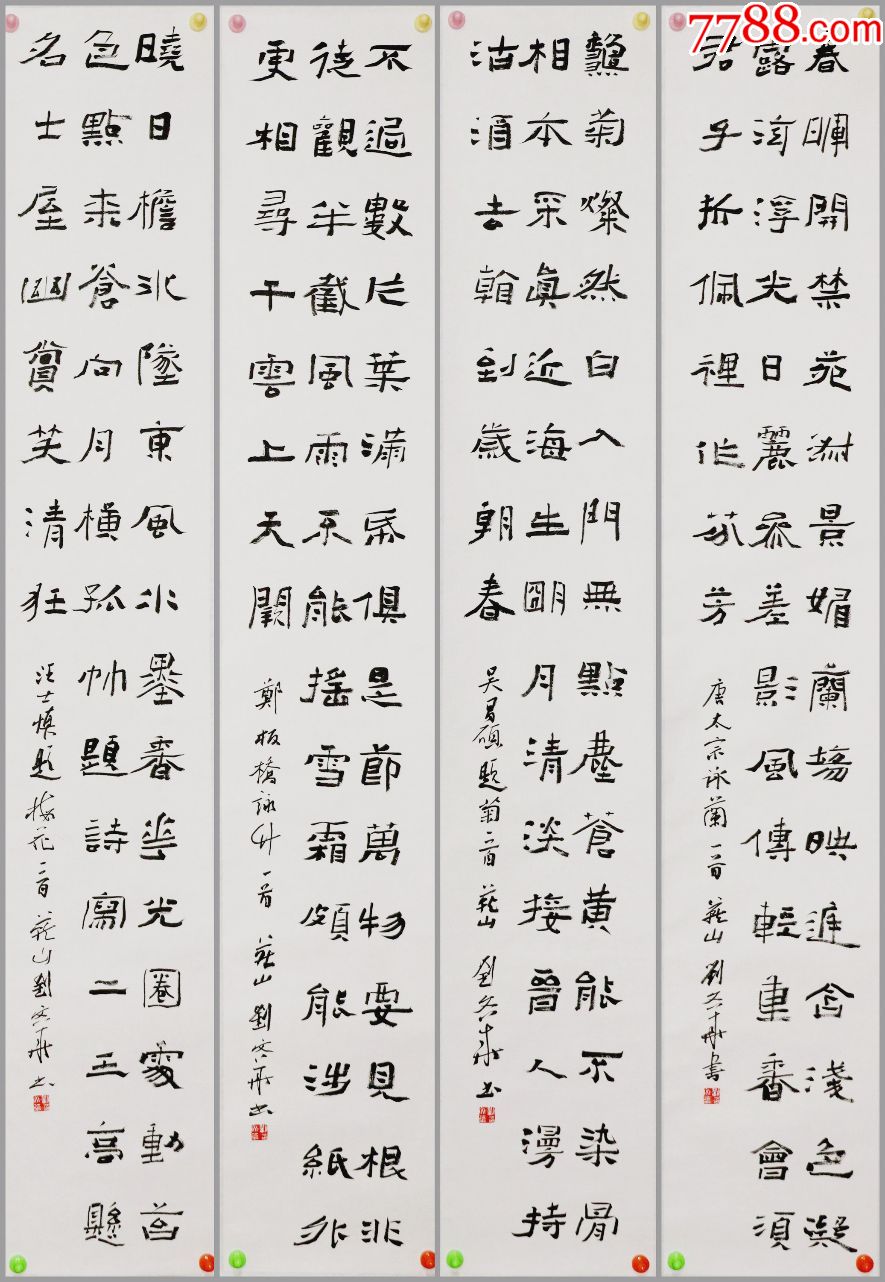 7788.com
春暉開禁苑淑景媚蘭場映庭含淺色凝
露泫浮光日麗參差影風傳輕重香會須
君子折佩裡作芬芳
唐太宗詠蘭一首 燕山劉冬華書
籬菊燦然白入門無點塵蒼黄能不染骨
相本采真近海生朙月清淡接晉人漫持
沽酒去看到歲朝春
吴昌碩題菊一首 燕山劉冬華書
不過數片葉滿紙俱是節萬物要見根非
徒觀半截風雨不能摇雪霜頗能涉紙外
更相尋干雲上天闕
鄭板橋詠竹一首 燕山劉冬華書
曉日檐冰墜東風水墨香華光圈處動苔
色點来蒼向月横孤帅題詩寫二王高懸
名士屋幽賞笑清狂
汪士慎題梅花一首 燕山劉冬華書